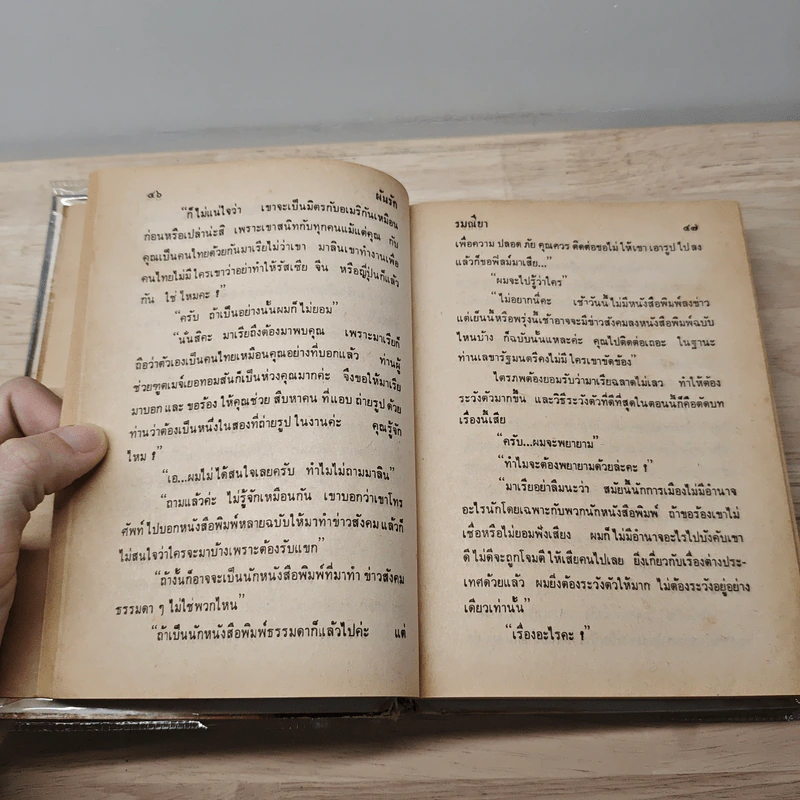 ๔๖ ผันรัก
“ก็ไม่แน่ใจว่า เขาจะเป็นมิตรกับอเมริกันเหมือน
ก่อนหรือเปล่าน่ะสิ เพราะเขาสนิทกับทุกคนแม้แต่คุณ กับ
คุณเป็นคนไทยด้วยกันมาเรียไม่ว่าเขา มาลินเขาทำงานเพื่อ
คนไทยไม่มีใครเขาว่าอย่าทำให้รัสเซีย จีน หรือญี่ปุ่นก็แล้ว
กัน ใช่ไหมคะ ?”
“ครับ ถ้าเป็นอย่างนั้นผมก็ไม่ยอม”
“นั่นสิคะ มาเรียถึงต้องมาพบคุณ เพราะมาเรียก็
ถือว่าตัวเองเป็นคนไทยเหมือนคุณอย่างที่บอกแล้ว ท่านผู้
ช่วยฑูตเมจ์เยอทอมสันก็เป็นห่วงคุณมากค่ะ จึงขอให้มาเรีย
มาบอก และ ขอร้อง ให้คุณช่วย สืบหาคน ที่แอบ ถ่ายรูป ด้วย
ท่านว่าต้องเป็นหนึ่งในสองที่ถ่ายรูป ในงานค่ะ คุณรู้จัก
ไหม ?”
“เอ...ผมไม่ได้สนใจเลยครับ ทำไมไม่ถามมาลิน”
“ถามแล้วค่ะ ไม่รู้จักเหมือนกัน เขาบอกว่าเขาโทร
ศัพท์ไปบอกหนังสือพิมพ์หลายฉบับให้มาทำข่าวสังคม แล้วก็
ไม่สนใจว่าใครจะมาบ้างเพราะต้องรับแขก”
“ถ้างั้นก็อาจจะเป็นนักหนังสือพิมพ์ที่มาทำ ข่าวสังคม
ธรรมดา ๆ ไม่ใช่พวกไหน”
“ถ้าเป็นนักหนังสือพิมพ์ธรรมดาก็แล้วไปค่ะ แต่
รมณียา ๔๗
เพื่อความ ปลอด ภัย คุณควร ติดต่อขอไม่ ให้เขา เอารูป ไป ลง
แล้วก็ขอฟิล์มมาเสีย...”
“ผมจะไปรู้ว่าใคร”
“ไม่อยากนี่คะ เช้าวันนี้ไม่มีหนังสือพิมพ์ลงข่าว
แต่เย็นนี้หรือพรุ่งนี้เช้าอาจจะมีข่าวสังคมลงหนังสือพิมพ์ฉบับ
ไหนบ้าง ก็ฉบับนั้นแหละค่ะ คุณไปติดต่อเถอะ ในฐานะ
ท่านเลขารัฐมนตรีคงไม่มีใครเขาขัดข้อง”
ไตรภพต้องยอมรับว่ามาเรียฉลาดไม่เลว ทำให้ต้อง
ระวังตัวมากขึ้น และวิธีระวังตัวที่ดีที่สุดในตอนนี้ก็คือตัดบท
เรื่องนี้เสีย
“ครับ...ผมจะพยายาม”
“ทำไมจะต้องพยายามด้วยล่ะคะ ?”
“มาเรียอย่าลืมนะว่า สมัยนี้นักการเมืองไม่มีอำนาจ
อะไรนักโดยเฉพาะกับพวกนักหนังสือพิมพ์ ถ้าขอร้องเขาไม่
เชื่อหรือไม่ยอมฟังเสียง ผมก็ไม่มีอำนาจอะไรไปบังคับเขา
ดี ไม่ดีจะถูกโจมตี ให้เสียคนไปเลย ยิ่งเกี่ยวกับเรื่องต่างประ-
เทศด้วยแล้ว ผมยิ่งต้องระวังตัวให้มาก ไม่ต้องระวังอยู่อย่าง
เดียวเท่านั้น”
“เรื่องอะไรคะ ?”